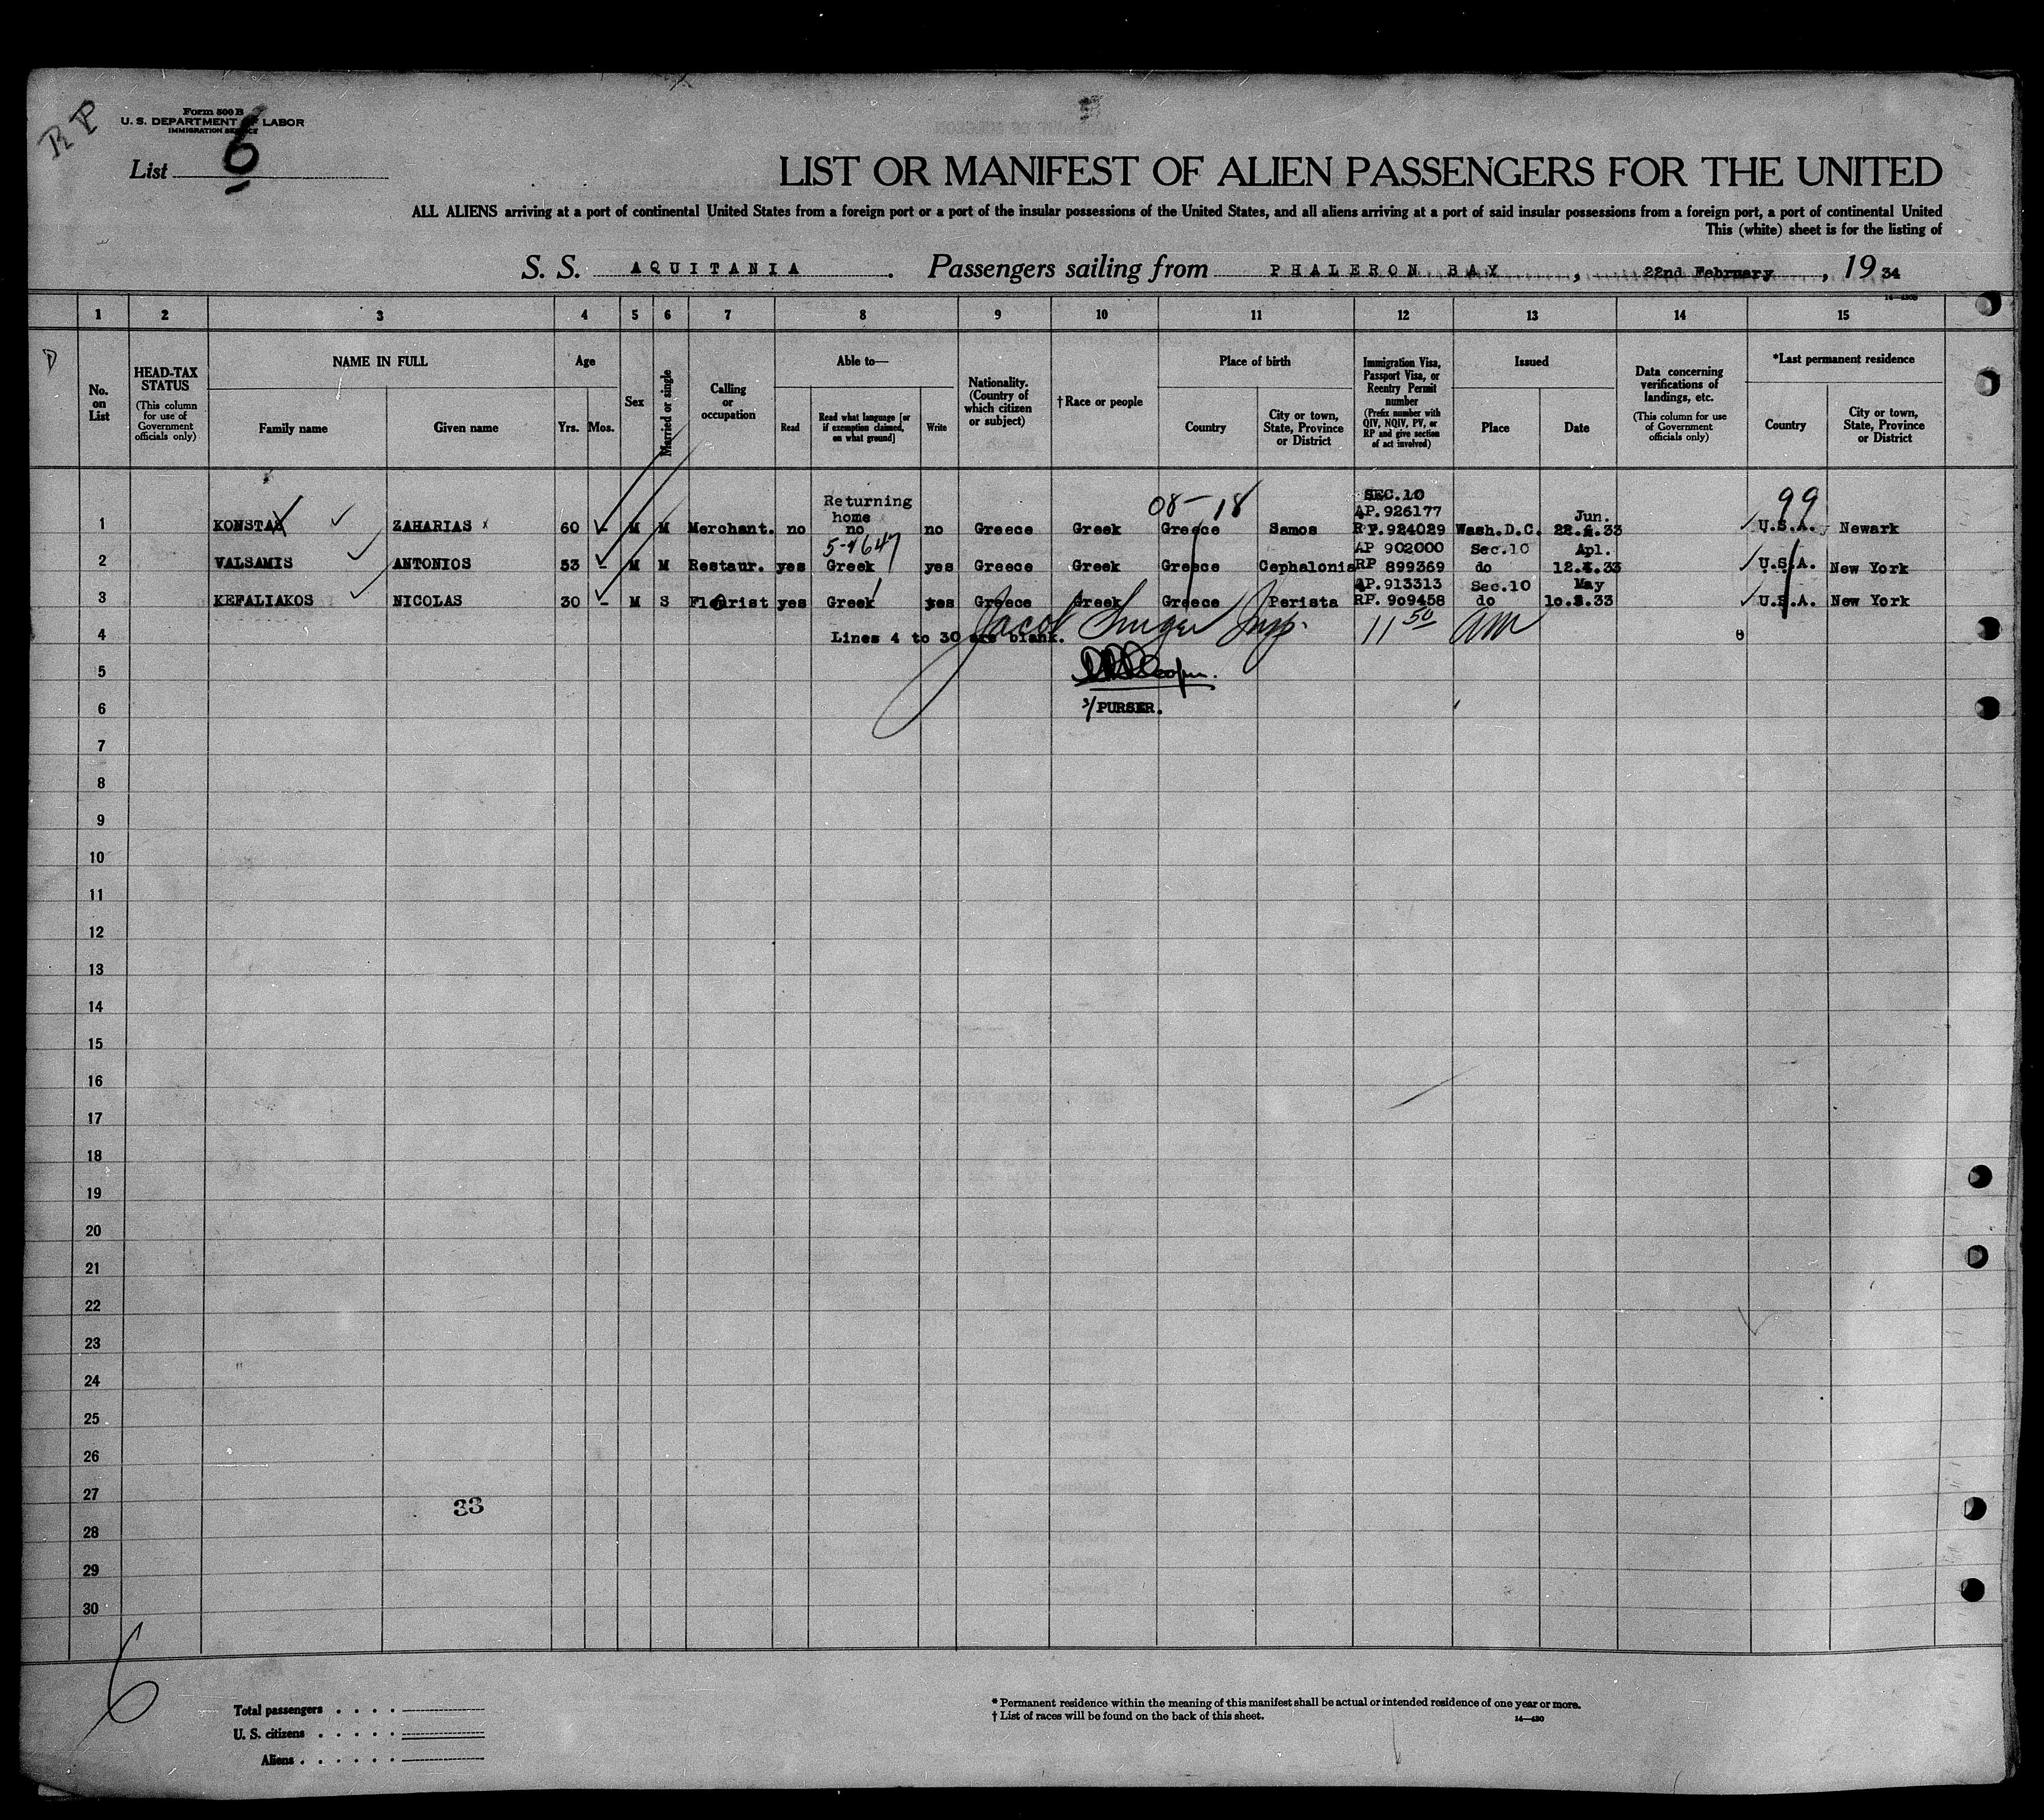 RP
Form 500 B
U. S. DEPARTMENT OF LABOR
IMMIGRATION SERVICE
List 6
LIST OR MANIFEST OF ALIEN PASSENGERS FOR THE UNITED
ALL ALIENS arriving at a port of continental United States from a foreign port or a port of the insular possessions of the United States, and all aliens arriving at a port of said insular possessions from a foreign port, a port of continental United
This (white) sheet is for the listing of
S. S. AQUITANIA. Passengers sailing from PHALERON BAY, 22nd February, 19 34
1 2 3 4 5 6 7 8 9 10 11 12 13 14 15
No. on List
HEAD-TAX STATUS (This column for use of Government officials only)
NAME IN FULL
Family name Given name
Age
Yrs. Mos.
Sex
Married or single
Calling or occupation
Able to—
Read
Read what language [or if exemption claimed, on what ground]
Write
Nationality. (Country of which citizen or subject)
†Race or people
Place of birth
Country
City or town, State, Province or District
Immigration Visa, Passport Visa, or Reentry Permit number (Prefix number with QIV, NQIV, PV, or RP and give section of act involved)
Issued
Place Date
Data concerning verifications of landings, etc. (This column for use of Government officials only)
*Last permanent residence
Country
City or town, State, Province or District
Returning home 08-18 SEC.10 AP.926177 Jun. 99
1 KONSTAS ZAHARIAS 60 - M M Merchant. no no no Greece Greek Greece Samos RP.924029 Wash.D.C. 33 U.S.A. Newark
AP 902000 Sec.10 Apl.
2 VALSAMIS ANTONIOS 53 - M M Restaur. yes Greek yes Greece Greek Greece Cephalonia RP 899369 do 12.4.33 U.S.A. New York
AP.913313 Sec.10 May
3 KEFALIAKOS NICOLAS 30 - M S Flourist yes Greek yes Greece Greek Greece Perista RP. 909458 do 33 U.S.A. New York
4 Lines 4 to 30 are blank. Jacob Insp. 11 50 am
5
6 PURSER.
7
8
9
10
11
12
13
14
15
16
17
18
19
20
21
22
23
24
25
26
27
33
28
29
30
6
Total passengers
U. S. citizens
Aliens
* Permanent residence within the meaning of this manifest shall be actual or intended residence of one year or more.
† List of races will be found on the back of this sheet.
14—430